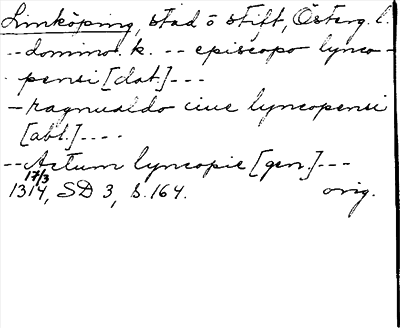 Linköping, stad o stift, Österg. l.
-- domino k. -- episcopo lynco-
pensi [dat.] ---
- ragnualdo ciue lyncopensi
[abl.] ----
-- Actum lyncopie [gen.] ---
17/3
1314, SD 3, s. 164. orig.